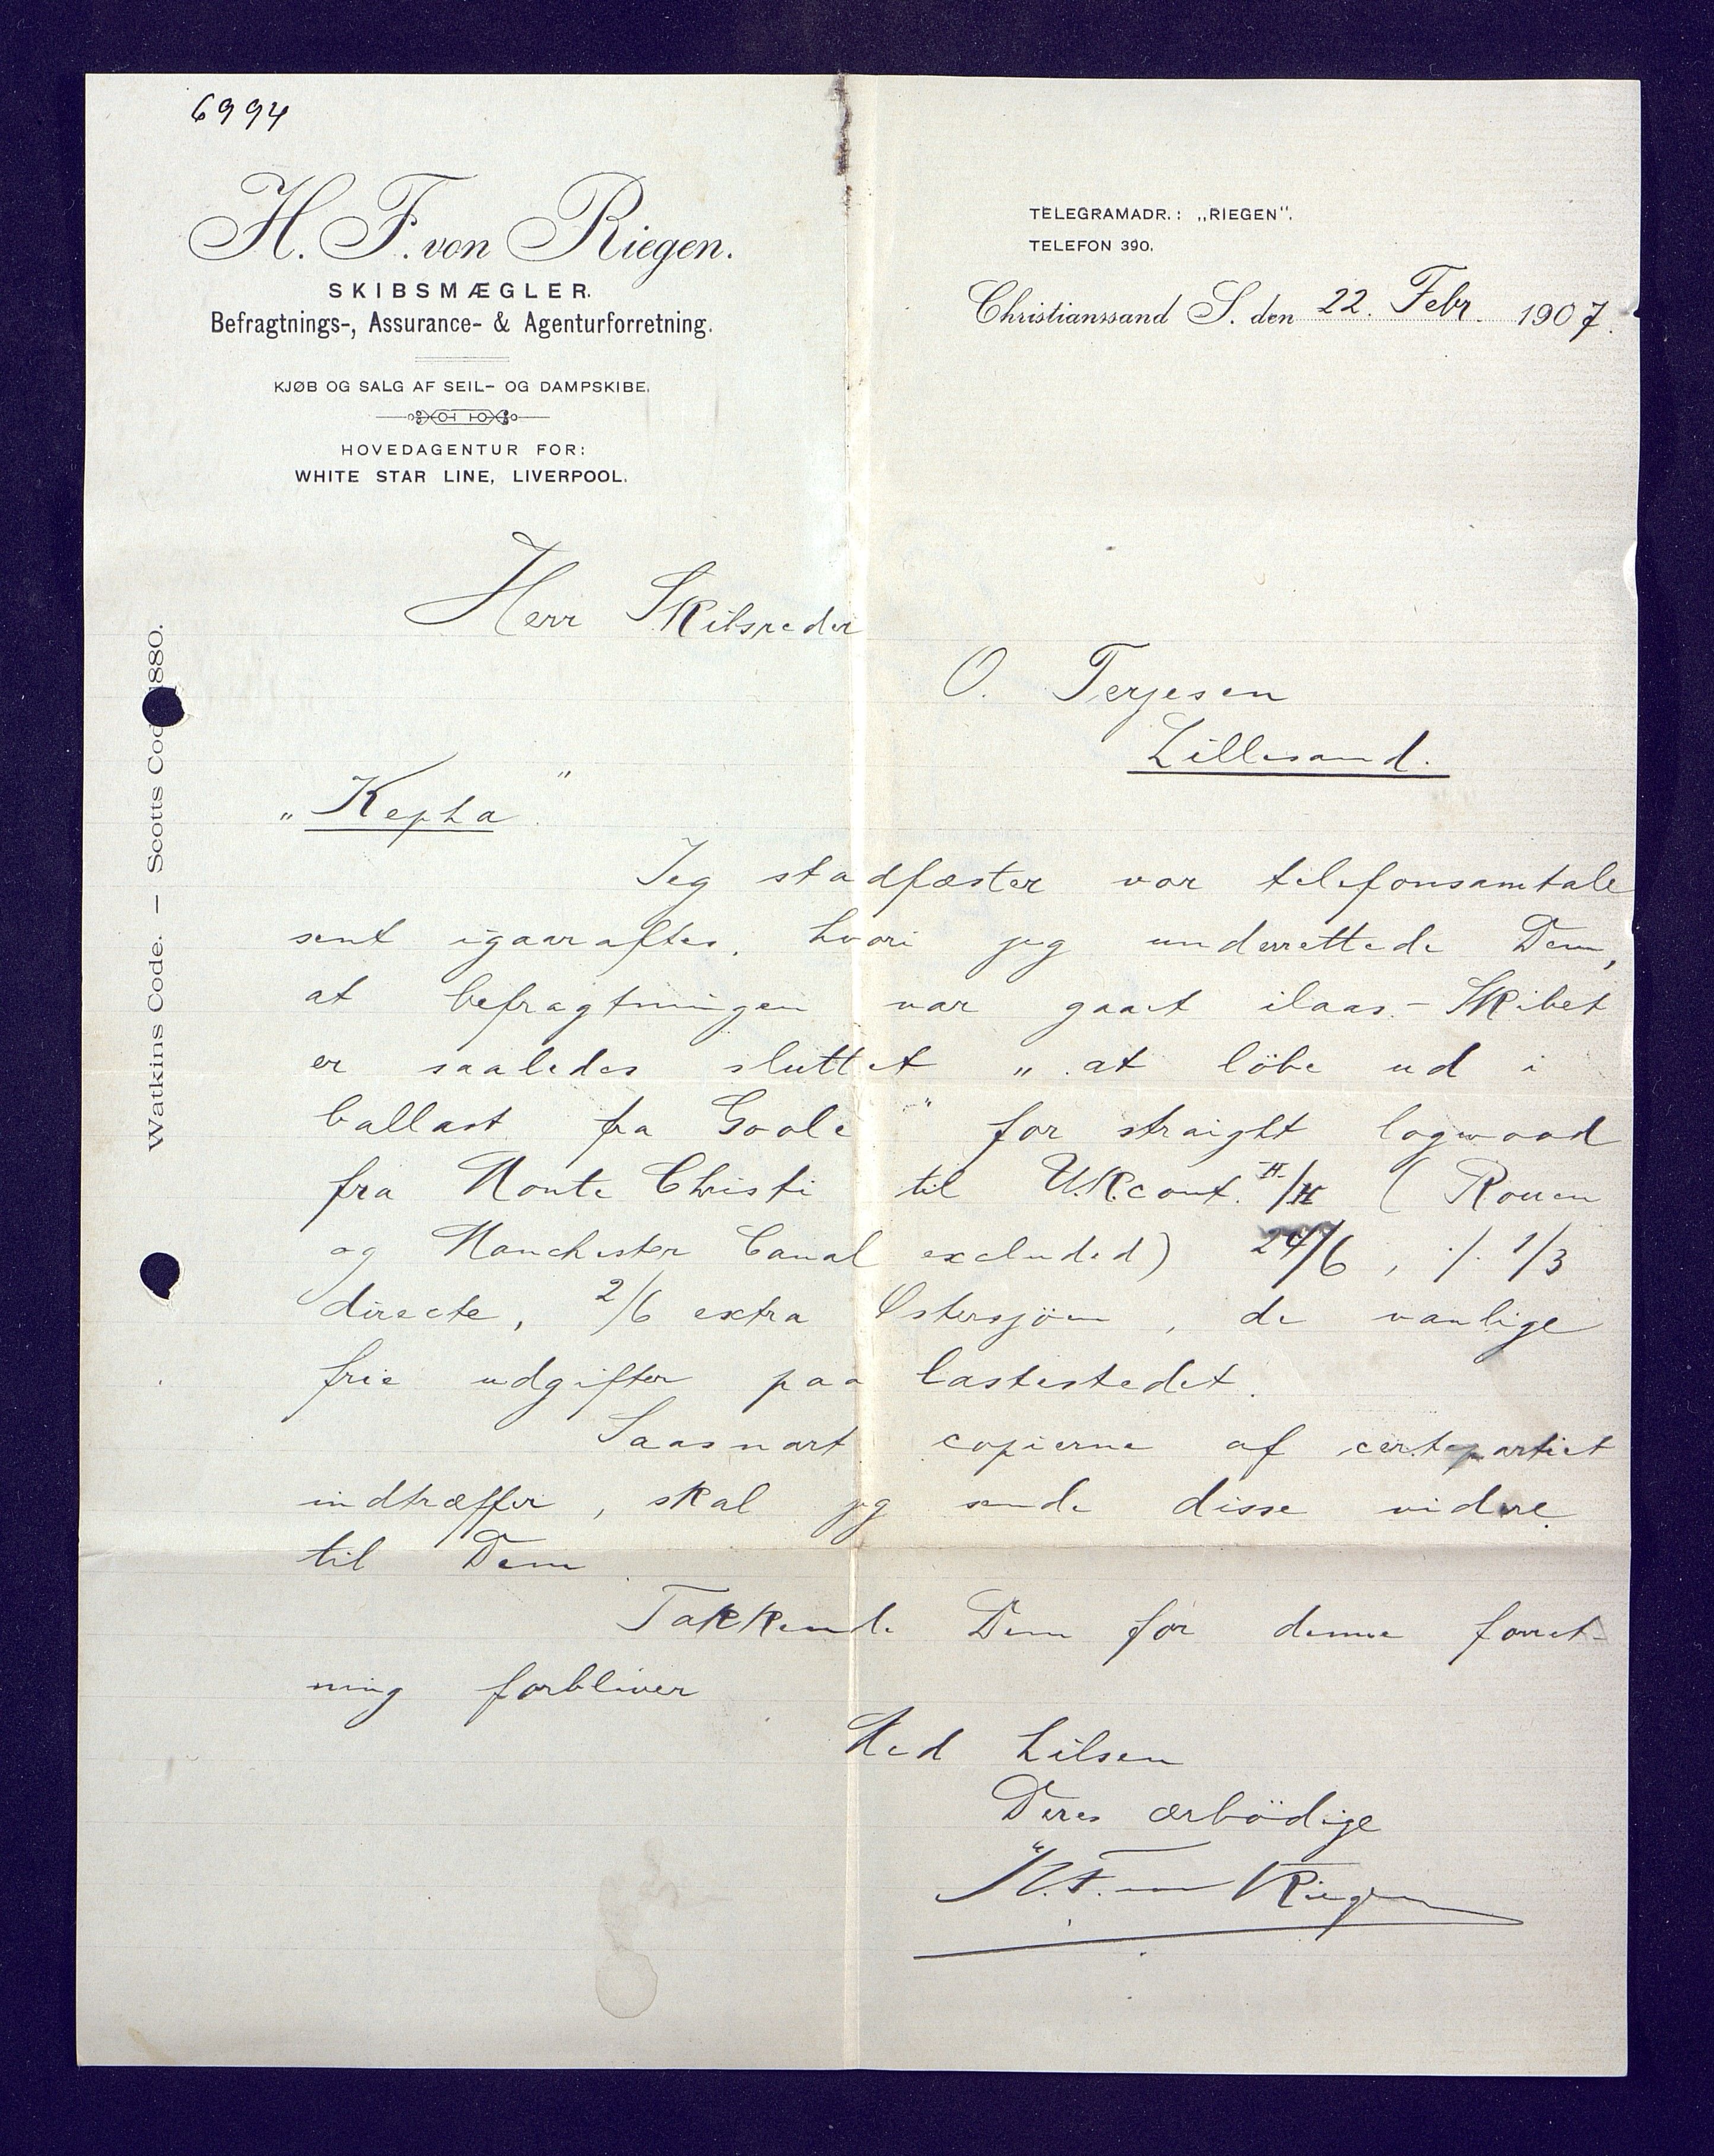 6994
H. F. von Riegen.
SKIBSMÆGLER.
Befragtnings-, Assurance- & Agenturforretning.
KJØB OG SALG AF SEIL- OG DAMPSKIBE.
HOVEDAGENTUR FOR:
WHITE STAR LINE, LIVERPOOL.
TELEGRAMADR.: „RIEGEN".
TELEFON 390.
Christianssand S. den 22. Febr. 1907.
Watkins Code. — Scotts Code 1880.
Herr Skibsreder
O. Terjesen
Lillesand.
„Kepha"
Jeg stadfæster vor telefonsamtale
sent igaaraftes, hvori jeg underrettede Dem,
at befragtningen var gaaet ilaas. – Skibet
er saaledes sluttet „at löbe ud i
ballast fra Goole" for straight logwood
fra Monte Christi til U.K. cont. H/H (Rouen
og Manchester Canal excluded) 24/6, ./. 1/3
directe, 2/6 extra Østersjöen, de vanlige
frie udgifter paa lastestedet.
Saasnart copierne af certepartiet
indtræffer, skal jeg sende disse videre
til Dem.
Takkende Dem for denne forret-
ning forbliver
Med hilsen
Deres ærbödige
H. F. von Riegen